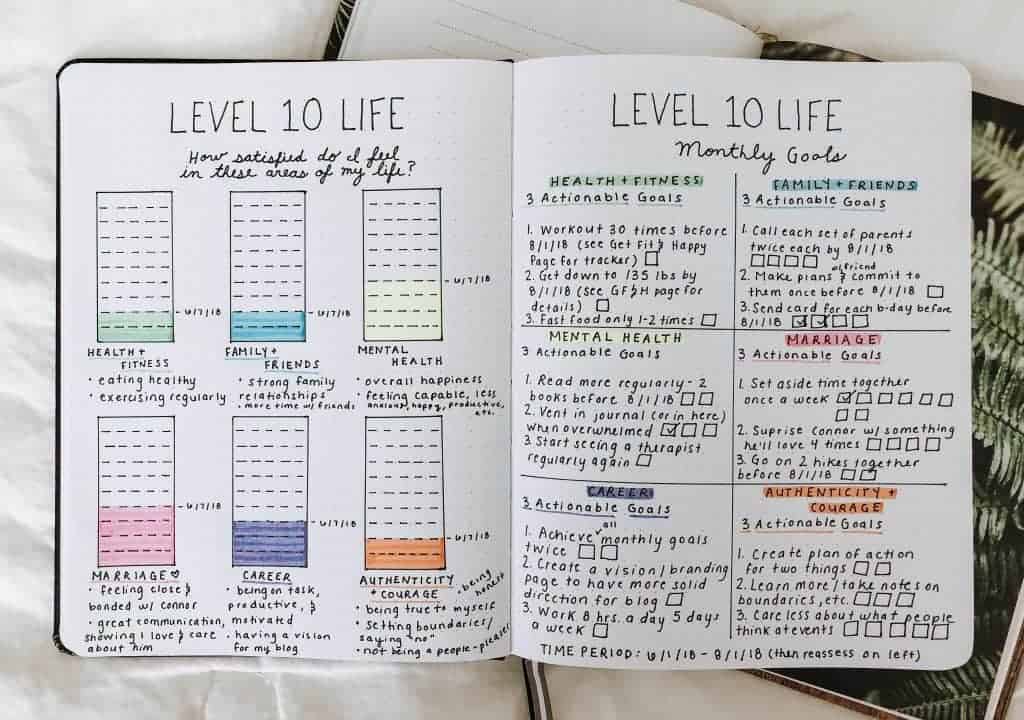 LEVEL 10 LIFE
How satisfied do I feel
in these areas of my life?
6/7/18
6/7/18
6/7/18
HEALTH +
FITNESS
• eating healthy
• exercising regularly
FAMILY +
FRIENDS
• strong family
relationships
• more time w/ friends
MENTAL
HEALTH
• overall happiness
feeling capable, less
anxious, happy, productive,
etc.
6/7/18
6/7/18
6/7/18
MARRIAGE ♡
• feeling close &
bonded w/ connor
• great communication,
showing I love & care
about him
CAREER
• being on task,
productive, &
motivated
• having a vision
for my blog
AUTHENTICITY
+ COURAGE
• being honest
• being true to myself
• setting boundaries/
saying "no"
• not being a people-pleaser
LEVEL 10 LIFE
Monthly Goals
HEALTH + FITNESS
3 Actionable Goals
1. Workout 30 times before
8/1/18 (see Get Fit & Happy
Page for tracker)
2. Get down to 135 lbs by
8/1/18 (see GF&H page for
details)
3. Fast food only 1-2 times
FAMILY + FRIENDS
3 Actionable Goals
1. Call each set of parents
twice each by 8/1/18
2. Make plans w/friend & commit to
them once before 8/1/18
3. Send card for each b-day before
8/1/18
MENTAL HEALTH
3 Actionable Goals
1. Read more regularly - 2
books before 8/1/18
2. Vent in journal (or in here)
when overwhelmed
3. Start seeing a therapist
regularly again
MARRIAGE
3 Actionable Goals
1. Set aside time together
once a week
2. Suprise Connor w/ something
he'll love 4 times
3. Go on 2 hikes together
before 8/1/18
CAREER
3 Actionable Goals
1. Achieve all monthly goals
twice
2. Create a vision/branding
page to have more solid
direction for blog
3. Work 8 hrs. a day 5 days
a week
AUTHENTICITY +
COURAGE
3 Actionable Goals
1. Create plan of action
for two things
2. Learn more/take notes on
boundaries, etc.
3. Care less about what people
think at events
TIME PERIOD: 6/1/18 - 8/1/18 (then reassess on left)